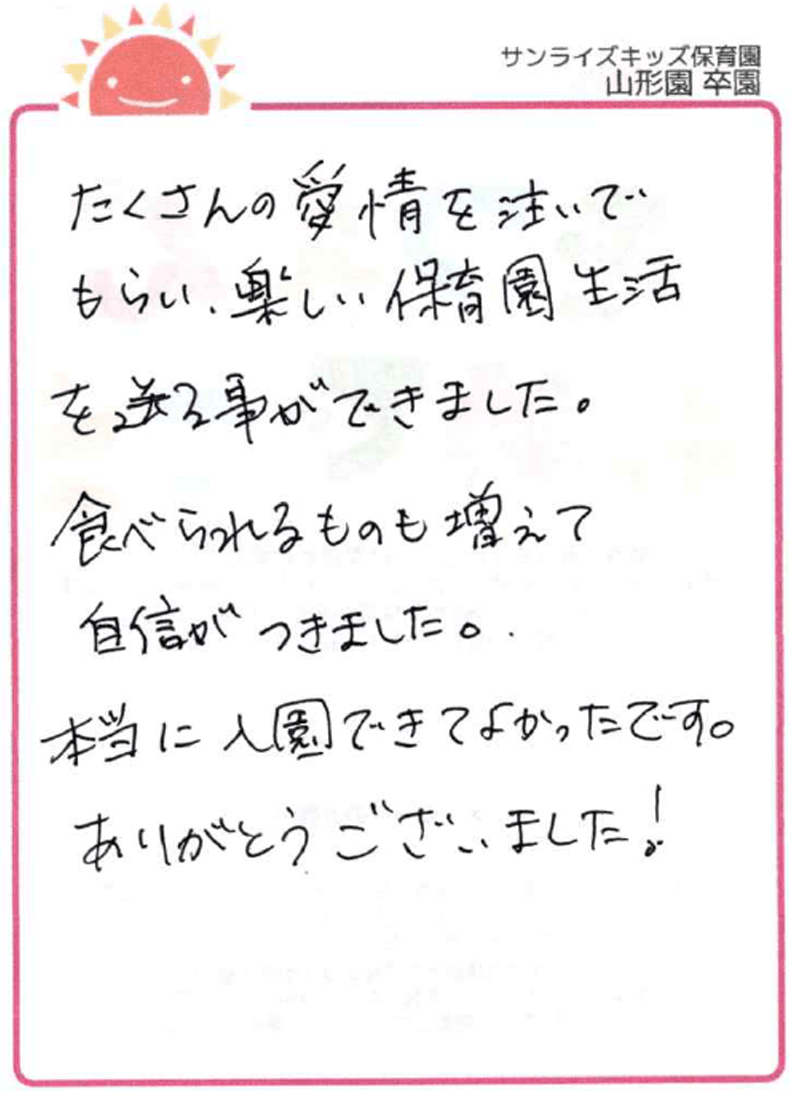 サンライズキッズ保育園
山形園 卒園
たくさんの愛情を注いで
もらい、楽しい保育園生活
を送る事ができました。
食べられるものも増えて
自信がつきました。
本当に入園できてよかったです。
ありがとうございました!